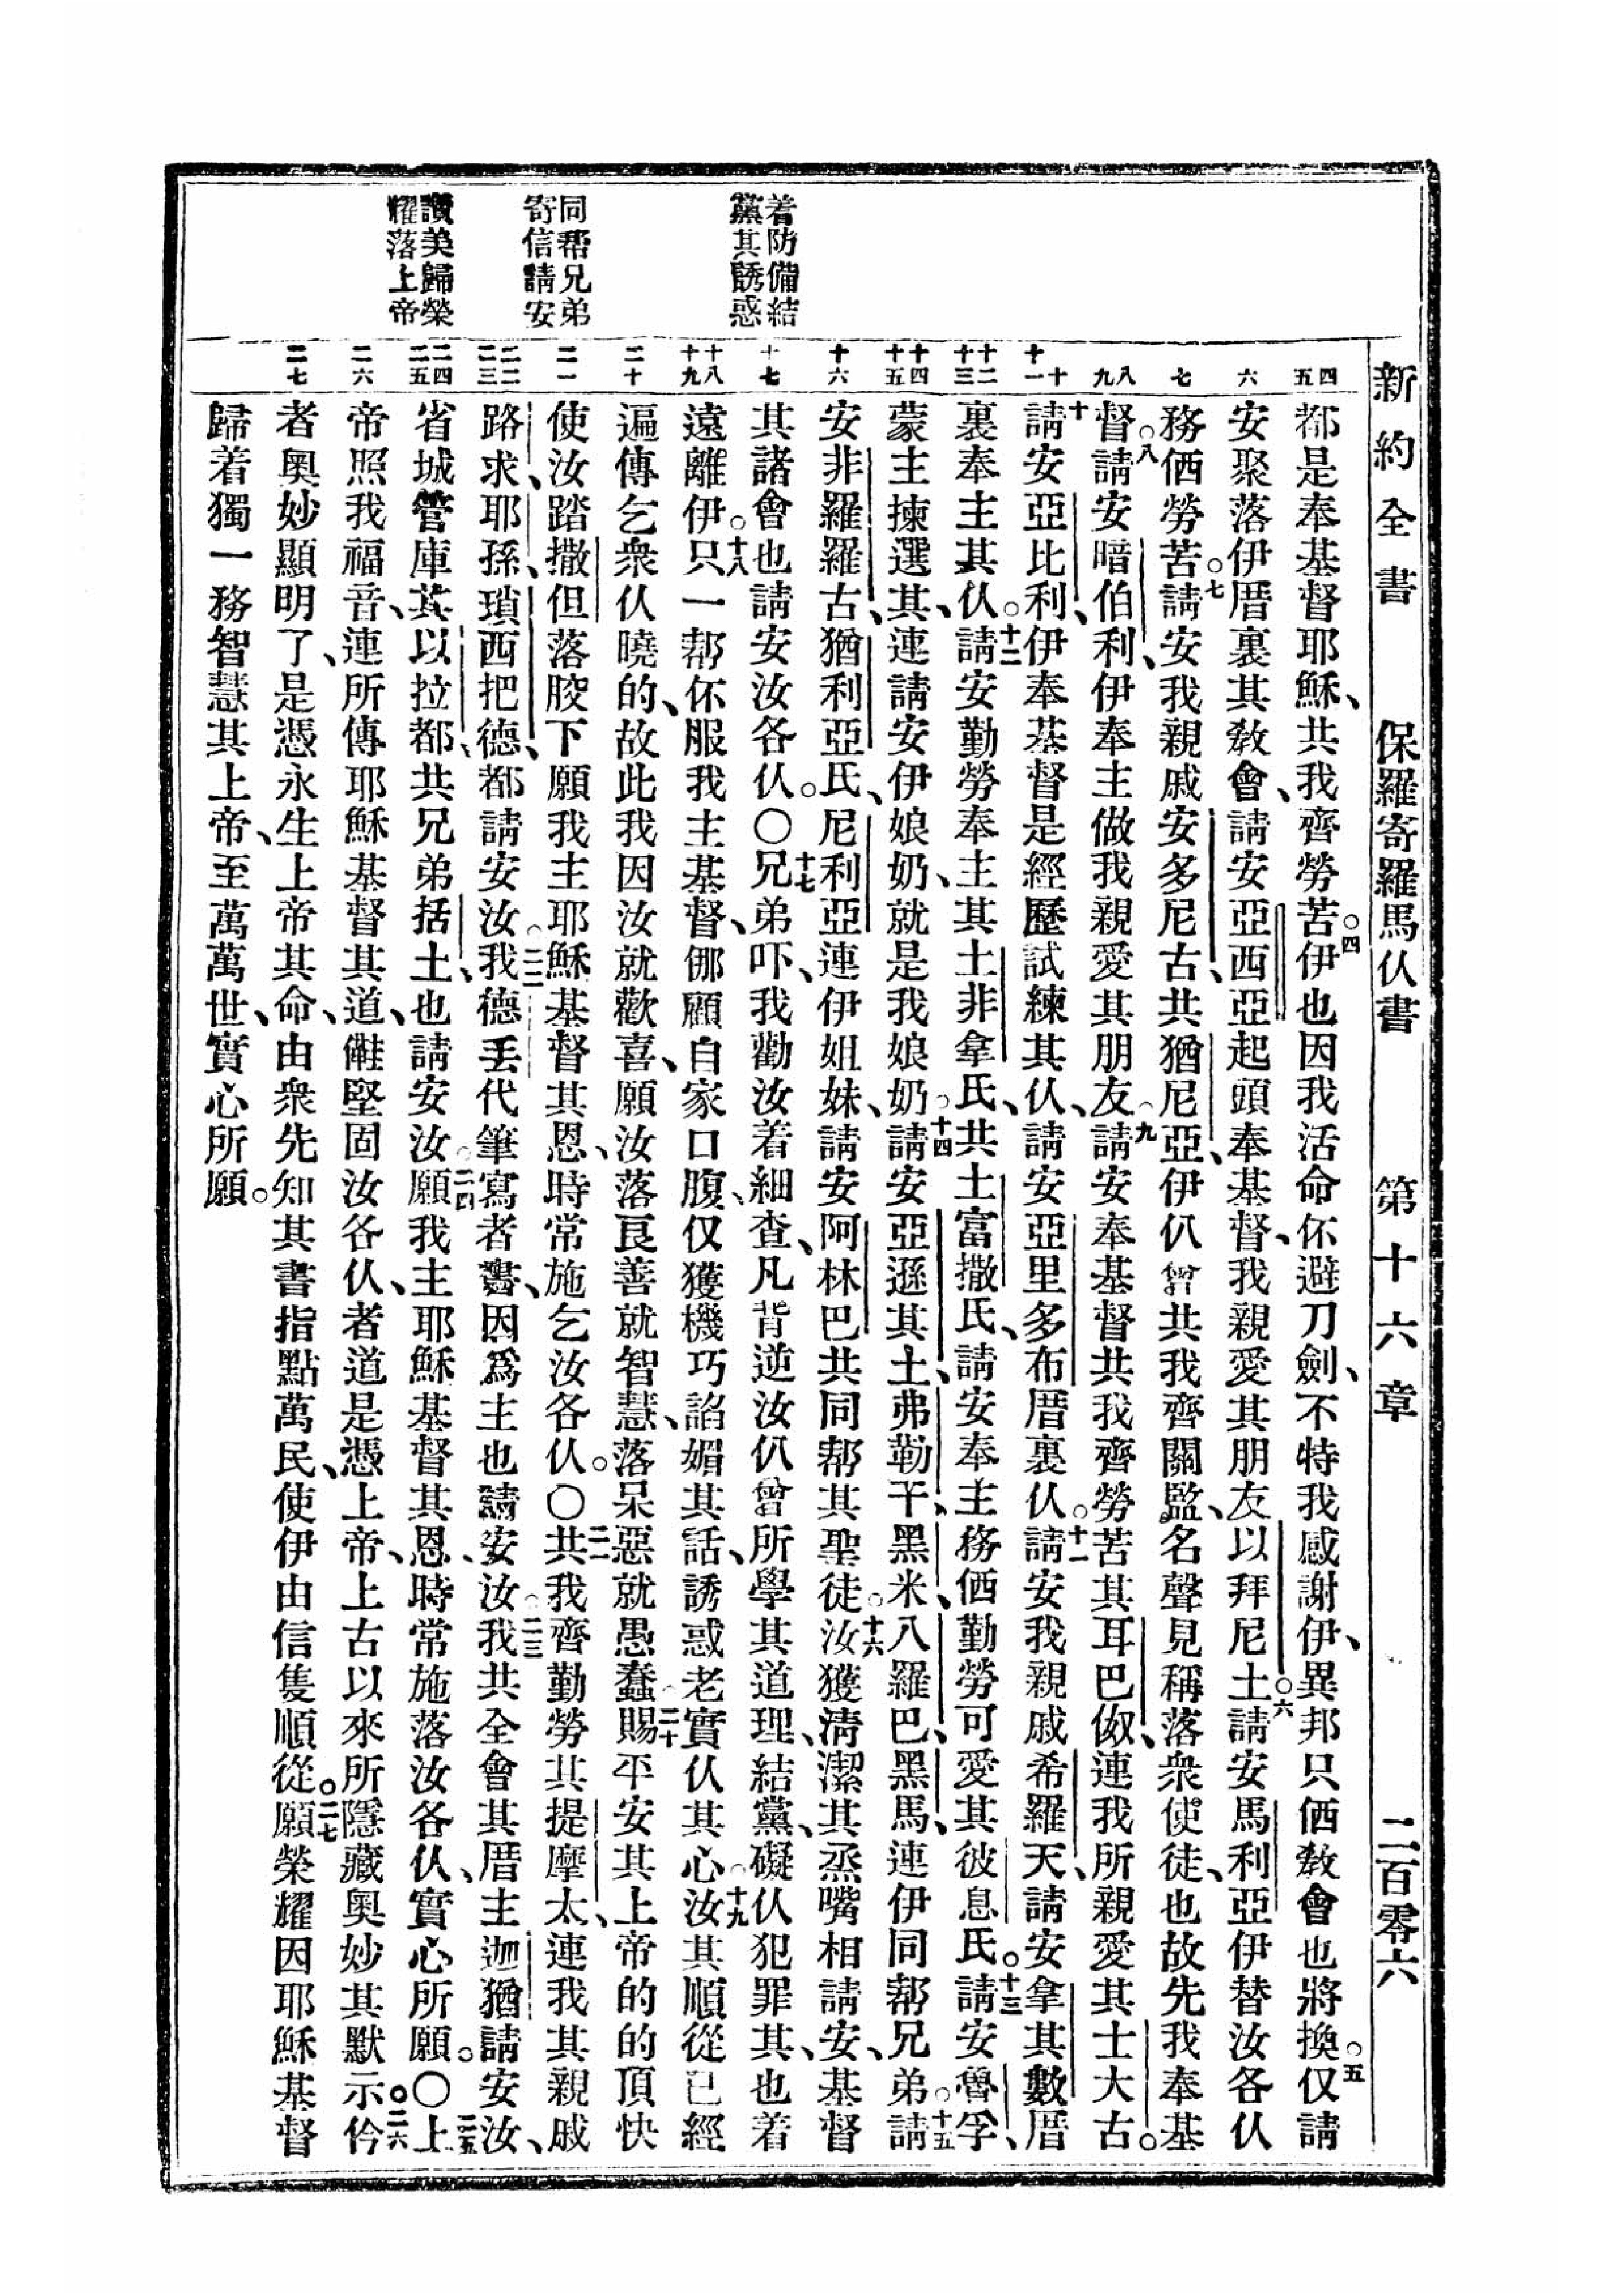 新約全書　保羅寄羅馬仈書　第十六章　二百零六
着防備結
黨其誘惑
同帮兄弟
寄信請安
讚美歸榮
耀落上帝
四
五
六
七
八
九
十
十一
十二
十三
十四
十五
十六
十七
十八
十九
二十
二一
二二
二三
二四
二五
二六
二七
都是奉基督耶穌、共我齊勞苦。四伊也因我活命伓避刀劍、不特我感謝伊、異邦只㒰敎會也將換。五仅請
安聚落伊厝裏其敎會、請安亞西亞起頭奉基督、我親愛其朋友以拜尼土。六請安馬利亞伊替汝各仈
務㒰勞苦。七請安我親戚安多尼古、共猶尼亞、伊仈曾共我齊關監、名聲見稱落衆使徒、也故先我奉基
督。八請安暗伯利、伊奉主做我親愛其朋友。九請安奉基督共我齊勞苦其耳巴伮、連我所親愛其士大古。
十請安亞比利、伊奉基督是經歷試練其仈、請安亞里多布厝裏仈。十一請安我親戚希羅天、請安拿其數厝
裏奉主其仈。十二請安勤勞奉主其土非拿氏、共土富撒氏、請安奉主務㒰勤勞可愛其彼息氏。十三請安魯孚、
蒙主揀選其、連請安伊娘奶、就是我娘奶。十四請安亞遜其土、弗勒干、黑米、八羅巴、黑馬、連伊同帮兄弟。十五請
安非羅羅古、猶利亞氏、尼利亞連伊姐妹、請安阿林巴共同帮其聖徒。十六汝獲淸潔其烝嘴相請安、基督
其諸會也請安汝各仈。〇十七兄弟吓、我勸汝着細查、凡背逆汝仈曾所學其道理、結黨、礙仈犯罪其、也着
遠離伊。十八只一帮伓服我主基督、那顧自家口腹、仅獲機巧諂媚其話、誘惑老實仈其心。十九汝其順從已經
遍傳乞衆仈曉的、故此我因汝就歡喜、願汝落良善就智慧、落呆惡就愚蠢。二十賜平安其上帝的的頂快
使汝踏撒但落骹下、願我主耶穌基督其恩、時常施乞汝各仈。〇二一共我齊勤勞其提摩太、連我其親戚
路求、耶孫、瑣西把德、都請安汝。二二我德丢代筆寫者書、因爲主也請安汝。二三我共全會其厝主迦猶請安汝、
省城管庫其以拉都、共兄弟括土、也請安汝。二四願我主耶穌基督其恩、時常施落汝各仈、實心所願。〇二五上
帝照我福音、連所傳耶穌基督其道、㒰堅固汝各仈、者道是憑上帝、上古以來所隱藏奧妙其默示。二六伱
者奧妙顯明了、是憑永生上帝其命、由衆先知其書指點萬民、使伊由信隻順從。二七願榮耀因耶穌基督
歸着獨一務智慧其上帝、至萬萬世、實心所願。